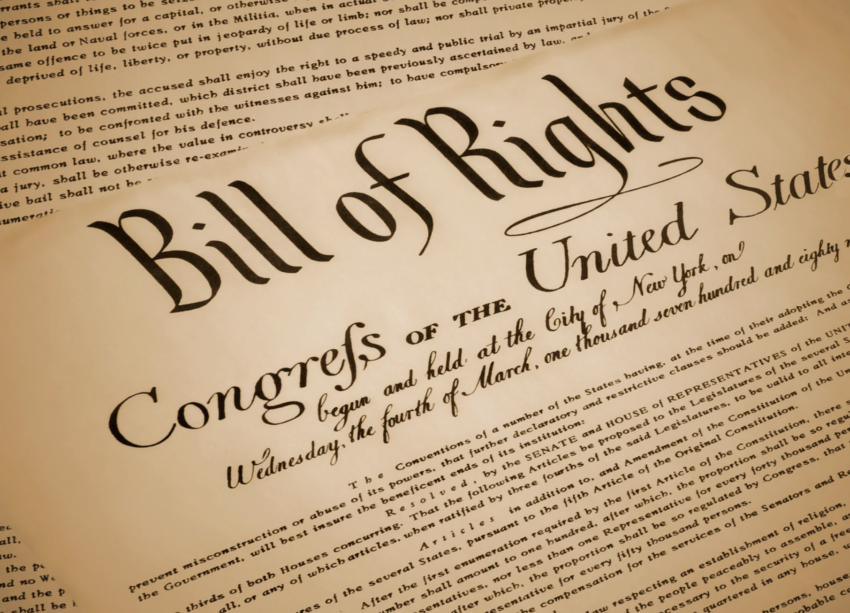 persons or things to be
be held to answer for a capital, or otherwise
the land or Naval forces, or in the Militia, when in actual
same offence to be twice put in jeopardy of life or limb; nor shall be
deprived of life, liberty, or property, without due process of law; nor shall private
prosecutions, the accused shall enjoy the right to a speedy and public trial by an impartial jury of the
shall have been committed, which district shall have been previously ascertained by law,
to be confronted with the witnesses against him; to have
assistance of counsel for his defence.
common law, where the value in controversy
a jury, shall be otherwise
bail shall not
Bill of Rights
Congreſs OF THE United States
begun and held at the City of New York, on
Wednesday, the fourth of March, one thousand seven hundred and eighty
The Conventions of a number of the States having, at the time of their adopting the
prevent misconstruction or abuse of its powers, that further declaratory and restrictive clauses should be added: And
the Government, will best insure the beneficent ends of its institution:
Resolved, by the SENATE and HOUSE of REPRESENTATIVES of the
thirds of both Houses concurring. That the following Articles be proposed to the Legislatures of the several
all, or any of which articles, when ratified by three fourths of the said Legislatures, to be valid to all
Articles in addition to, and Amendment of the Constitution of the
of the several States, pursuant to the fifth Article of the Original Constitution.
After the first enumeration required by the first Article of the Constitution, there
number shall amount to one hundred, after which, the proportion shall be so
nor less than one Representative for every forty thousand
after which, the proportion shall be so regulated by Congress, that
Representative for every fifty thousand persons.
the compensation for the services of the Senators and
law respecting an establishment of religion,
of the people peaceably to assemble,
to the security of a free
quartered in any house,